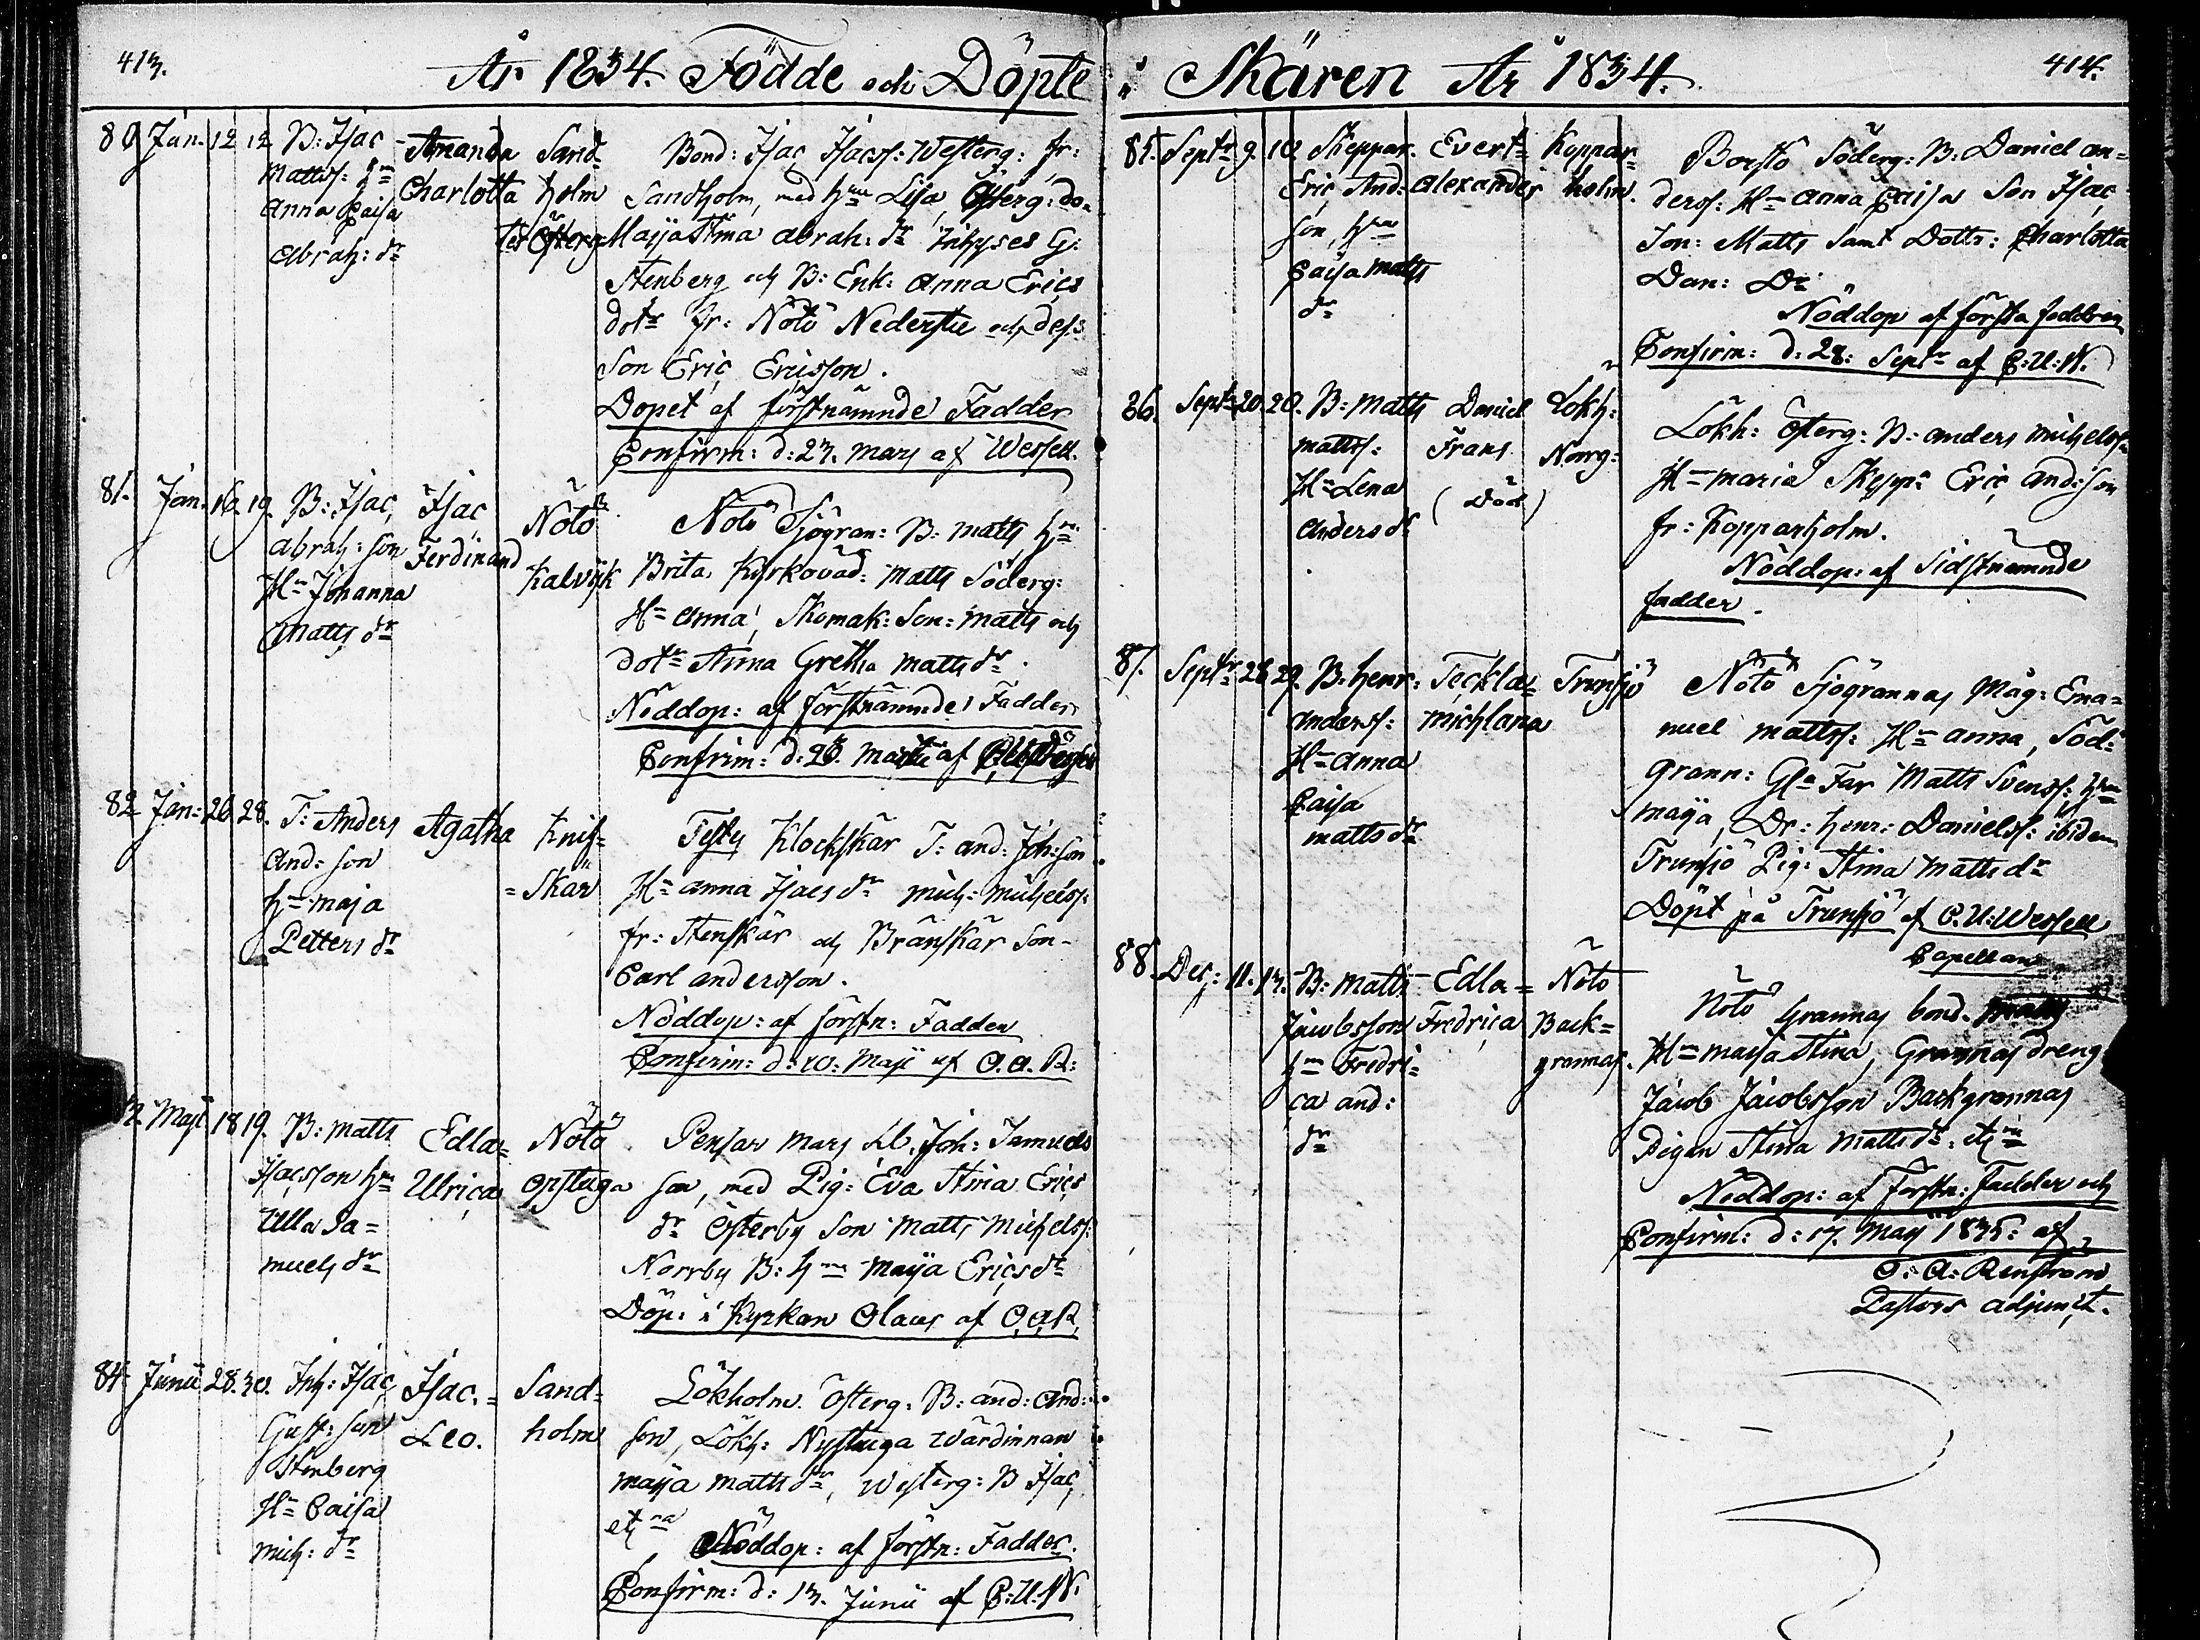 413.
År 1834. Födde och Döpte
80 Jan. 12 12 B: Isac Matts: Hu Anna Caisa Abrah: dr
Amanda Charlotta
Sandholm
Bond: Isac Isacs: Westerg: fr:
Sandholm, med Hu Lisa, Österg: do-
ter Maija Stina Abrah: dr Inhyses G:
Stenberg och B: Enk: Anna Erics
dotr fr: Nötö Nederstu och dess
Son Eric Ericsson.
Dopet af förstnämnde Fadder
Confirm: d: 23. Mars af Wessell.
81. Jan. 16. 19. B: Isac Abrah: son Hu Johanna Matts dr
Isac Ferdinand
Nötö Kalvik
Nötö Sjögran: B: Matts, Hu
Brita, Kyrkovärd: Matts Söderg:
Hu Anna, Skomak: Son: Matts och
dotr Anna Gretha Matts dr.
Nöddop: af förstnämnde Fadder
Confirm: d: 23. Martii af
82 Jan: 26. 28. T: Anders And: son Hu Maja Petters dr
Agatha
Knif-
=Skär
Klockskär T: And: Joh: son
Hu Anna Isacs dr Mich: Michelss:
fr: Stenskär och Bränskär Son
Carl Andersson.
Nöddop: af förstn: Fadder
Confirm: d: 10. Maji af O. A. R:
Maji 18 19. B: Matts Isacsson Hu Ulla Samuels dr
Edla= Ulrica
Nötö Opstuga
Pensar Mars Joh: Samuels
son, med Pig: Eva Stina Erics
dr Österby Son Matts Michelss:
Norrby B: Hu Maija Ericsdr
Döp: i Kyrkan af O. A. R.
84. Junii 28. 30. Inh: Isac Gust: son Stenberg Hu Caisa Mich: dr
Isac.= Leo.
Sand= holm
Lökholm Österg: B: And: And:
son, Lökh: Nystuga Wärdinnan
Maija Matts dr, Westerg: B Isac,
Nöddop: af förstn: Fadder.
Confirm: d: 13. Junii af C: U: W.
i Skären År 1834.
414.
85. Septr 9. 10. Skeppar. Eric And: son, Hu Caisa Matts dr
Evert= Alexander
Koppar= holm.
Borstö Söderg: B: Daniel An=
derss: Hu Anna Caisa Son Isac
Son: Matts Samt Dottr: Charlotta
Dan: Dr
Nöddop af första faddren
Confirm: d: 28: Septr af C: U: W.
86. Septr 20. 20. B: Matts Mattss: Hu Lena Anders dr
Daniel Frans
(Död)
Lökh: Norrg:
Lökh: Österg: B: Anders Michelss:
Hu Maria Skepp: Eric And: son
fr: Kopparholm.
Nöddop: af Sidstnämnde
fadder.
87. Septr 28 29. B. Henr: Anderss: Hu Anna Caisa Matts dr
Teckla= Michlana
Trunsjö
Nötö Sjögrannas Måg: Ema=
nuel Mattss: Hu Anna, Söd:
grann: Gla Far Matts Svenss: Hu
Maija, Dr: Henr: Danielss: ibidem
Trunsjö Pig: Stina Matts dr
Döpt på Trunsjö af C. U: Wessell
Capellan
88. Dec: 11. 13. B: Matts Jacobsson Hu Fredrica And: dr
Edla= Fredrica
Nötö Back= grannas.
Nötö Grannas bond. Matts
Hu Maija Stina, Grannas dreng
Jacob Jacobsson Backgrannas
Pigan Stina Matts dr.
Nöddop: af Förstn: Fadder och
Confirm: d: 17. Maij 1835: af
O: A: Renstrand
Pastors adjunct.